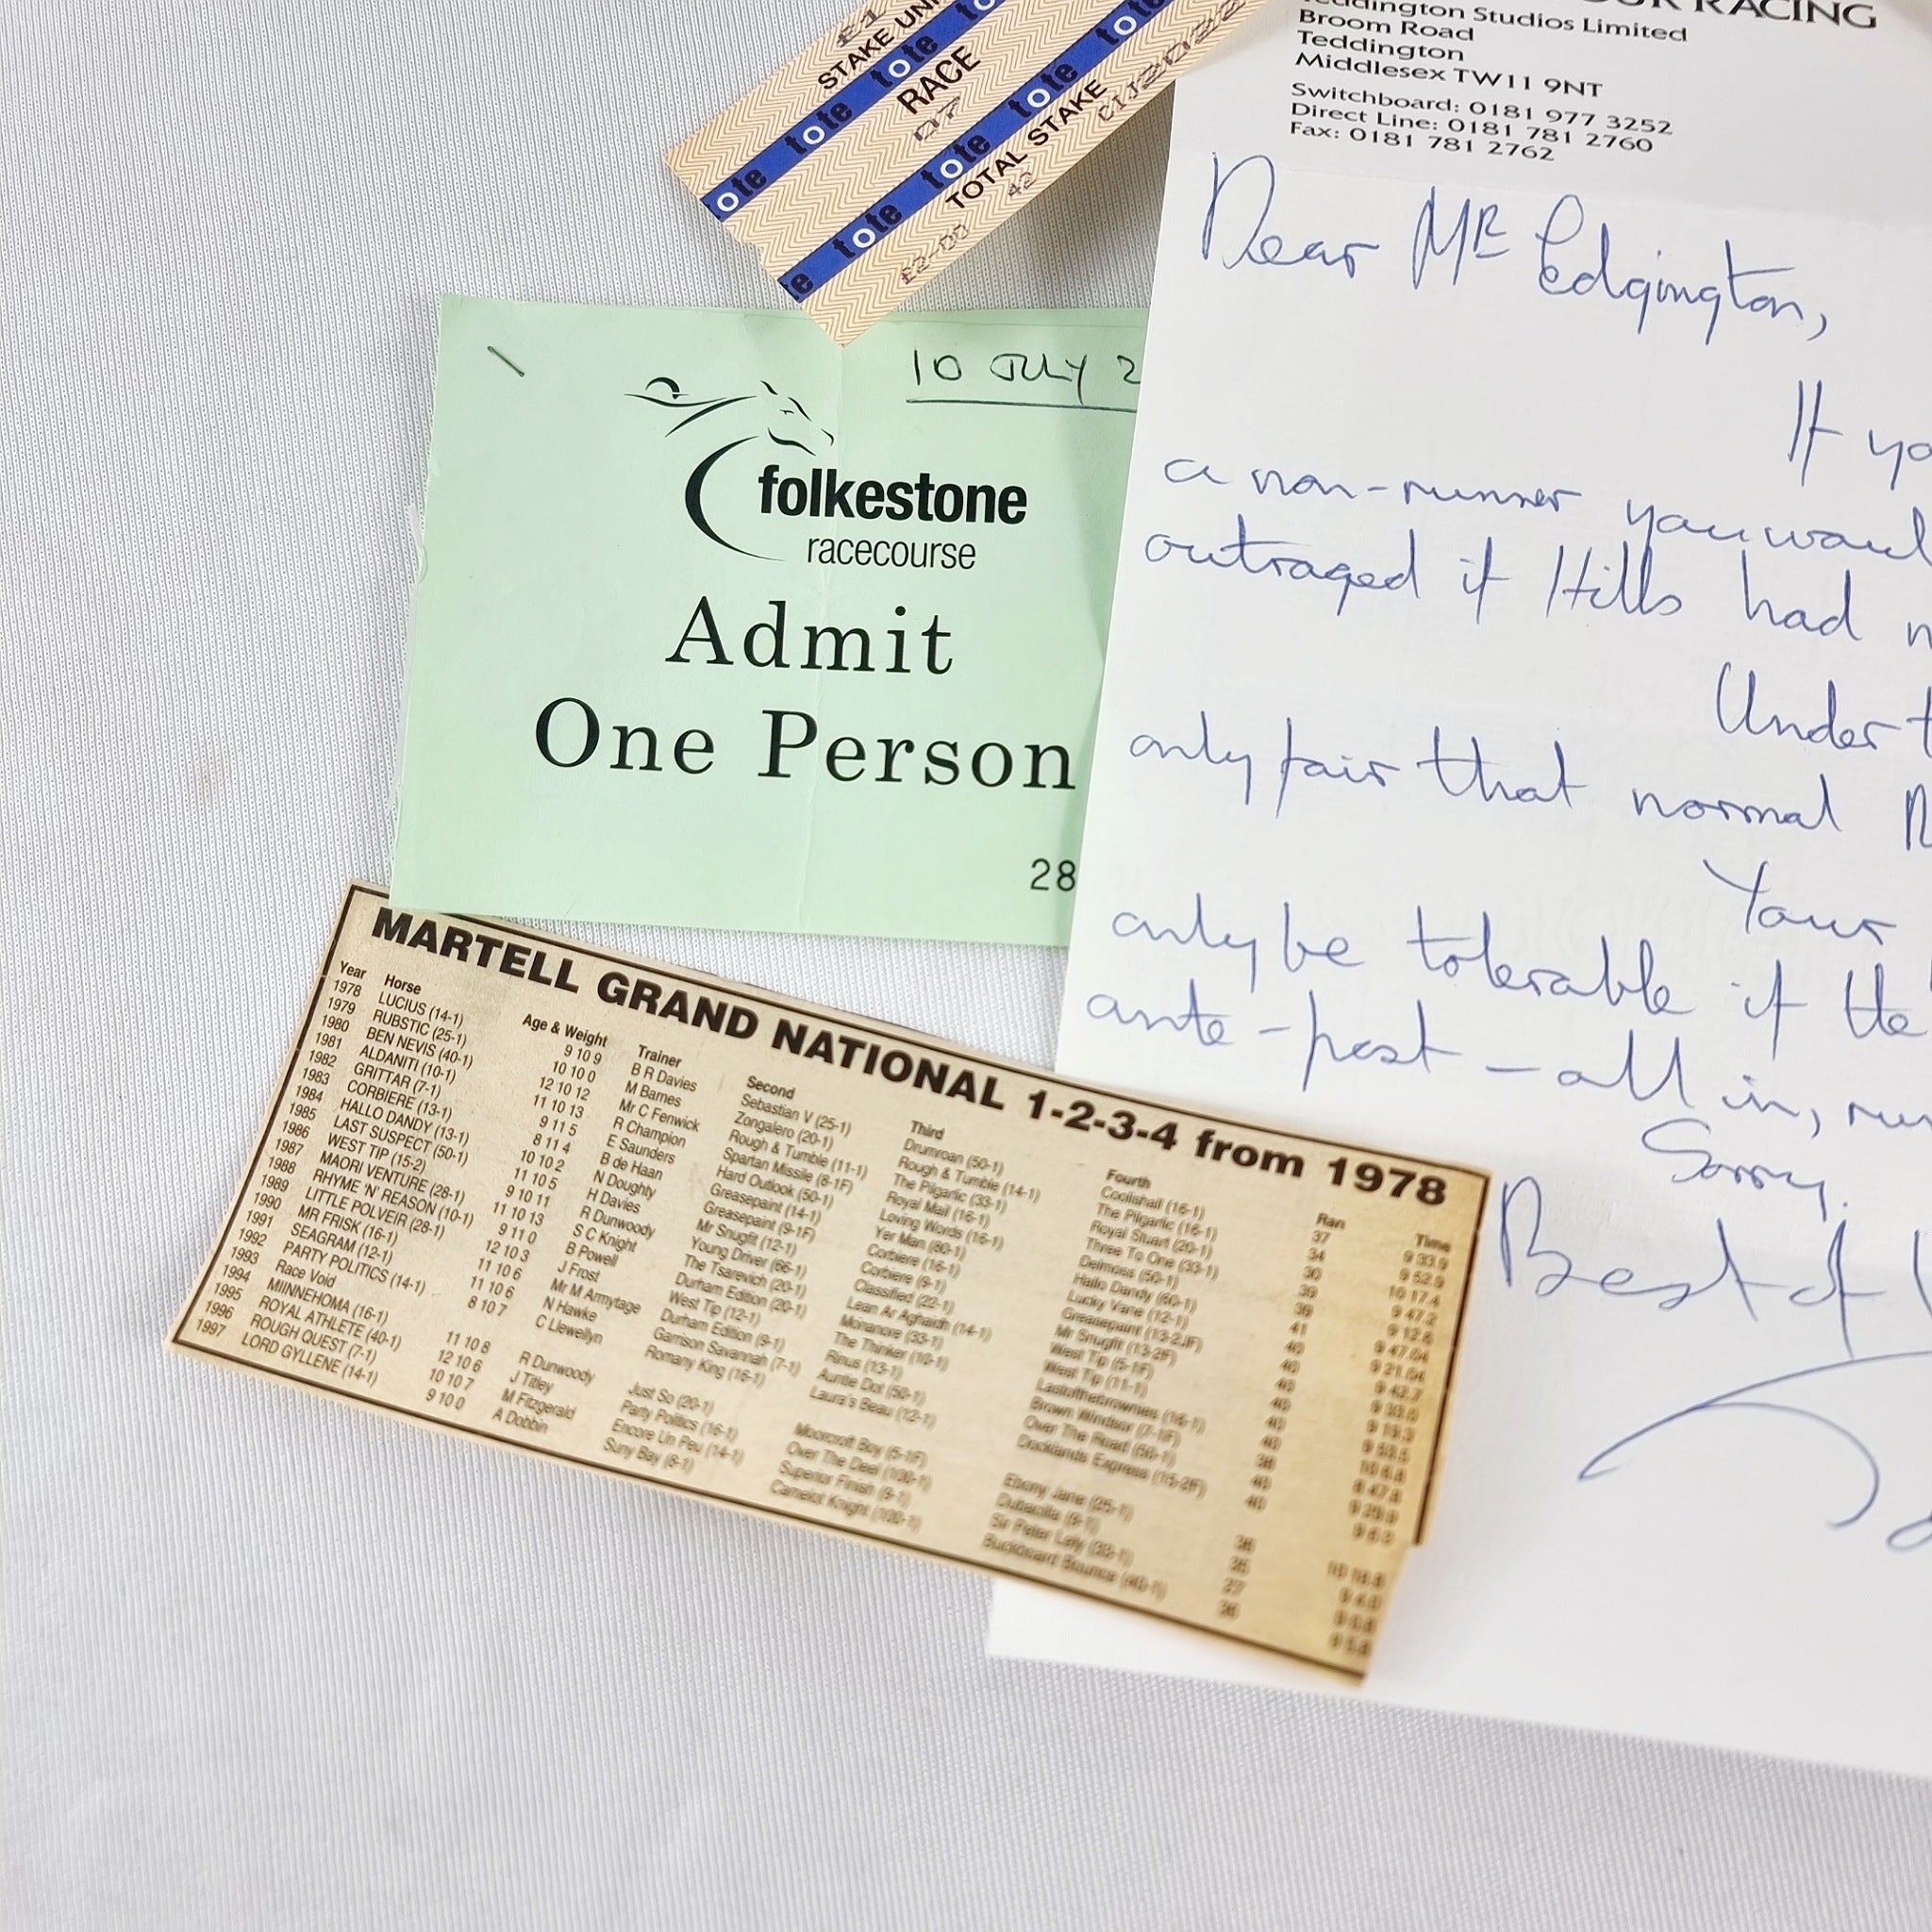 £1
STAKE
tote tote
RACE
07
tote tote tote tote
TOTAL STAKE
42
£2-00
RACING
Teddington Studios Limited
Broom Road
Teddington
Middlesex TW11 9NT
Switchboard: 0181 977 3252
Direct Line: 0181 781 2760
Fax: 0181 781 2762
Dear Mr Edgington,
If
a non-runner you
outraged if Hills had
Under
only fair that normal
Your
only be tolerable if the
ante-post - all in,
Sorry.
Best of
10 JULY 2
folkestone
racecourse
Admit
One Person
28
MARTELL GRAND NATIONAL 1-2-3-4 from 1978
Year Horse Age & Weight Trainer Second Third Fourth Ran Time
1978 LUCIUS (14-1) 9 10 9 B R Davies Sebastian V (25-1) Drumroan (50-1) Coolishall (16-1) 37 9 33.9
1979 RUBSTIC (25-1) 10 10 0 M Barnes Zongalero (20-1) Rough & Tumble (14-1) The Pilgarlic (16-1) 34 9 52.9
1980 BEN NEVIS (40-1) 12 10 12 Mr C Fenwick Rough & Tumble (11-1) The Pilgarlic (33-1) Royal Stuart (20-1) 30 10 17.4
1981 ALDANITI (10-1) 11 10 13 R Champion Spartan Missile (8-1F) Royal Mail (16-1) Three To One (33-1) 39 9 47.2
1982 GRITTAR (7-1) 9 11 5 E Saunders Hard Outlook (50-1) Loving Words (16-1) Delmoss (50-1) 39 9 12.6
1983 CORBIERE (13-1) 8 11 4 B de Haan Greasepaint (14-1) Yer Man (80-1) Hallo Dandy (60-1) 41 9 47.04
1984 HALLO DANDY (13-1) 10 10 2 N Doughty Greasepaint (9-1F) Corbiere (16-1) Lucky Vane (12-1) 40 9 21.04
1985 LAST SUSPECT (50-1) 11 10 5 H Davies Mr Snugfit (12-1) Corbiere (9-1) Greasepaint (13-2JF) 40 9 42.7
1986 WEST TIP (15-2) 9 10 11 R Dunwoody Young Driver (66-1) Classified (22-1) Mr Snugfit (13-2F) 40 9 33.0
1987 MAORI VENTURE (28-1) 11 10 13 S C Knight The Tsarevich (20-1) Lean Ar Aghaidh (14-1) West Tip (5-1F) 40 9 19.3
1988 RHYME 'N' REASON (10-1) 9 11 0 B Powell Durham Edition (20-1) Monanore (33-1) West Tip (11-1) 40 9 53.5
1989 LITTLE POLVEIR (28-1) 12 10 3 J Frost West Tip (12-1) The Thinker (10-1) Lastofthebrownies (16-1) 40
1990 MR FRISK (16-1) 11 10 6 Mr M Armytage Durham Edition (9-1) Rinus (13-1) Brown Windsor (7-1F) 38 8 47.8
1991 SEAGRAM (12-1) 11 10 6 N Hawke Garrison Savannah (7-1) Auntie Dot (50-1) Over The Road (50-1) 40 9 29.9
1992 PARTY POLITICS (14-1) 8 10 7 C Llewellyn Romany King (16-1) Laura's Beau (12-1) Docklands Express (15-2F) 40 9 6.3
1993 Race Void
1994 MIINNEHOMA (16-1) 11 10 8 R Dunwoody Just So (20-1) Moorcroft Boy (5-1F) Ebony Jane (25-1) 36 10 18.8
1995 ROYAL ATHLETE (40-1) 12 10 6 J Titley Party Politics (16-1) Over The Deel (100-1) Dubacilla (9-1) 35 9 4.0
1996 ROUGH QUEST (7-1) 10 10 7 M Fitzgerald Encore Un Peu (14-1) Superior Finish (9-1) Sir Peter Lely (33-1) 27 9 0.8
1997 LORD GYLLENE (14-1) 9 10 0 A Dobbin Suny Bay (8-1) Camelot Knight (100-1) Buckboard Bounce (40-1) 36 9 5.8